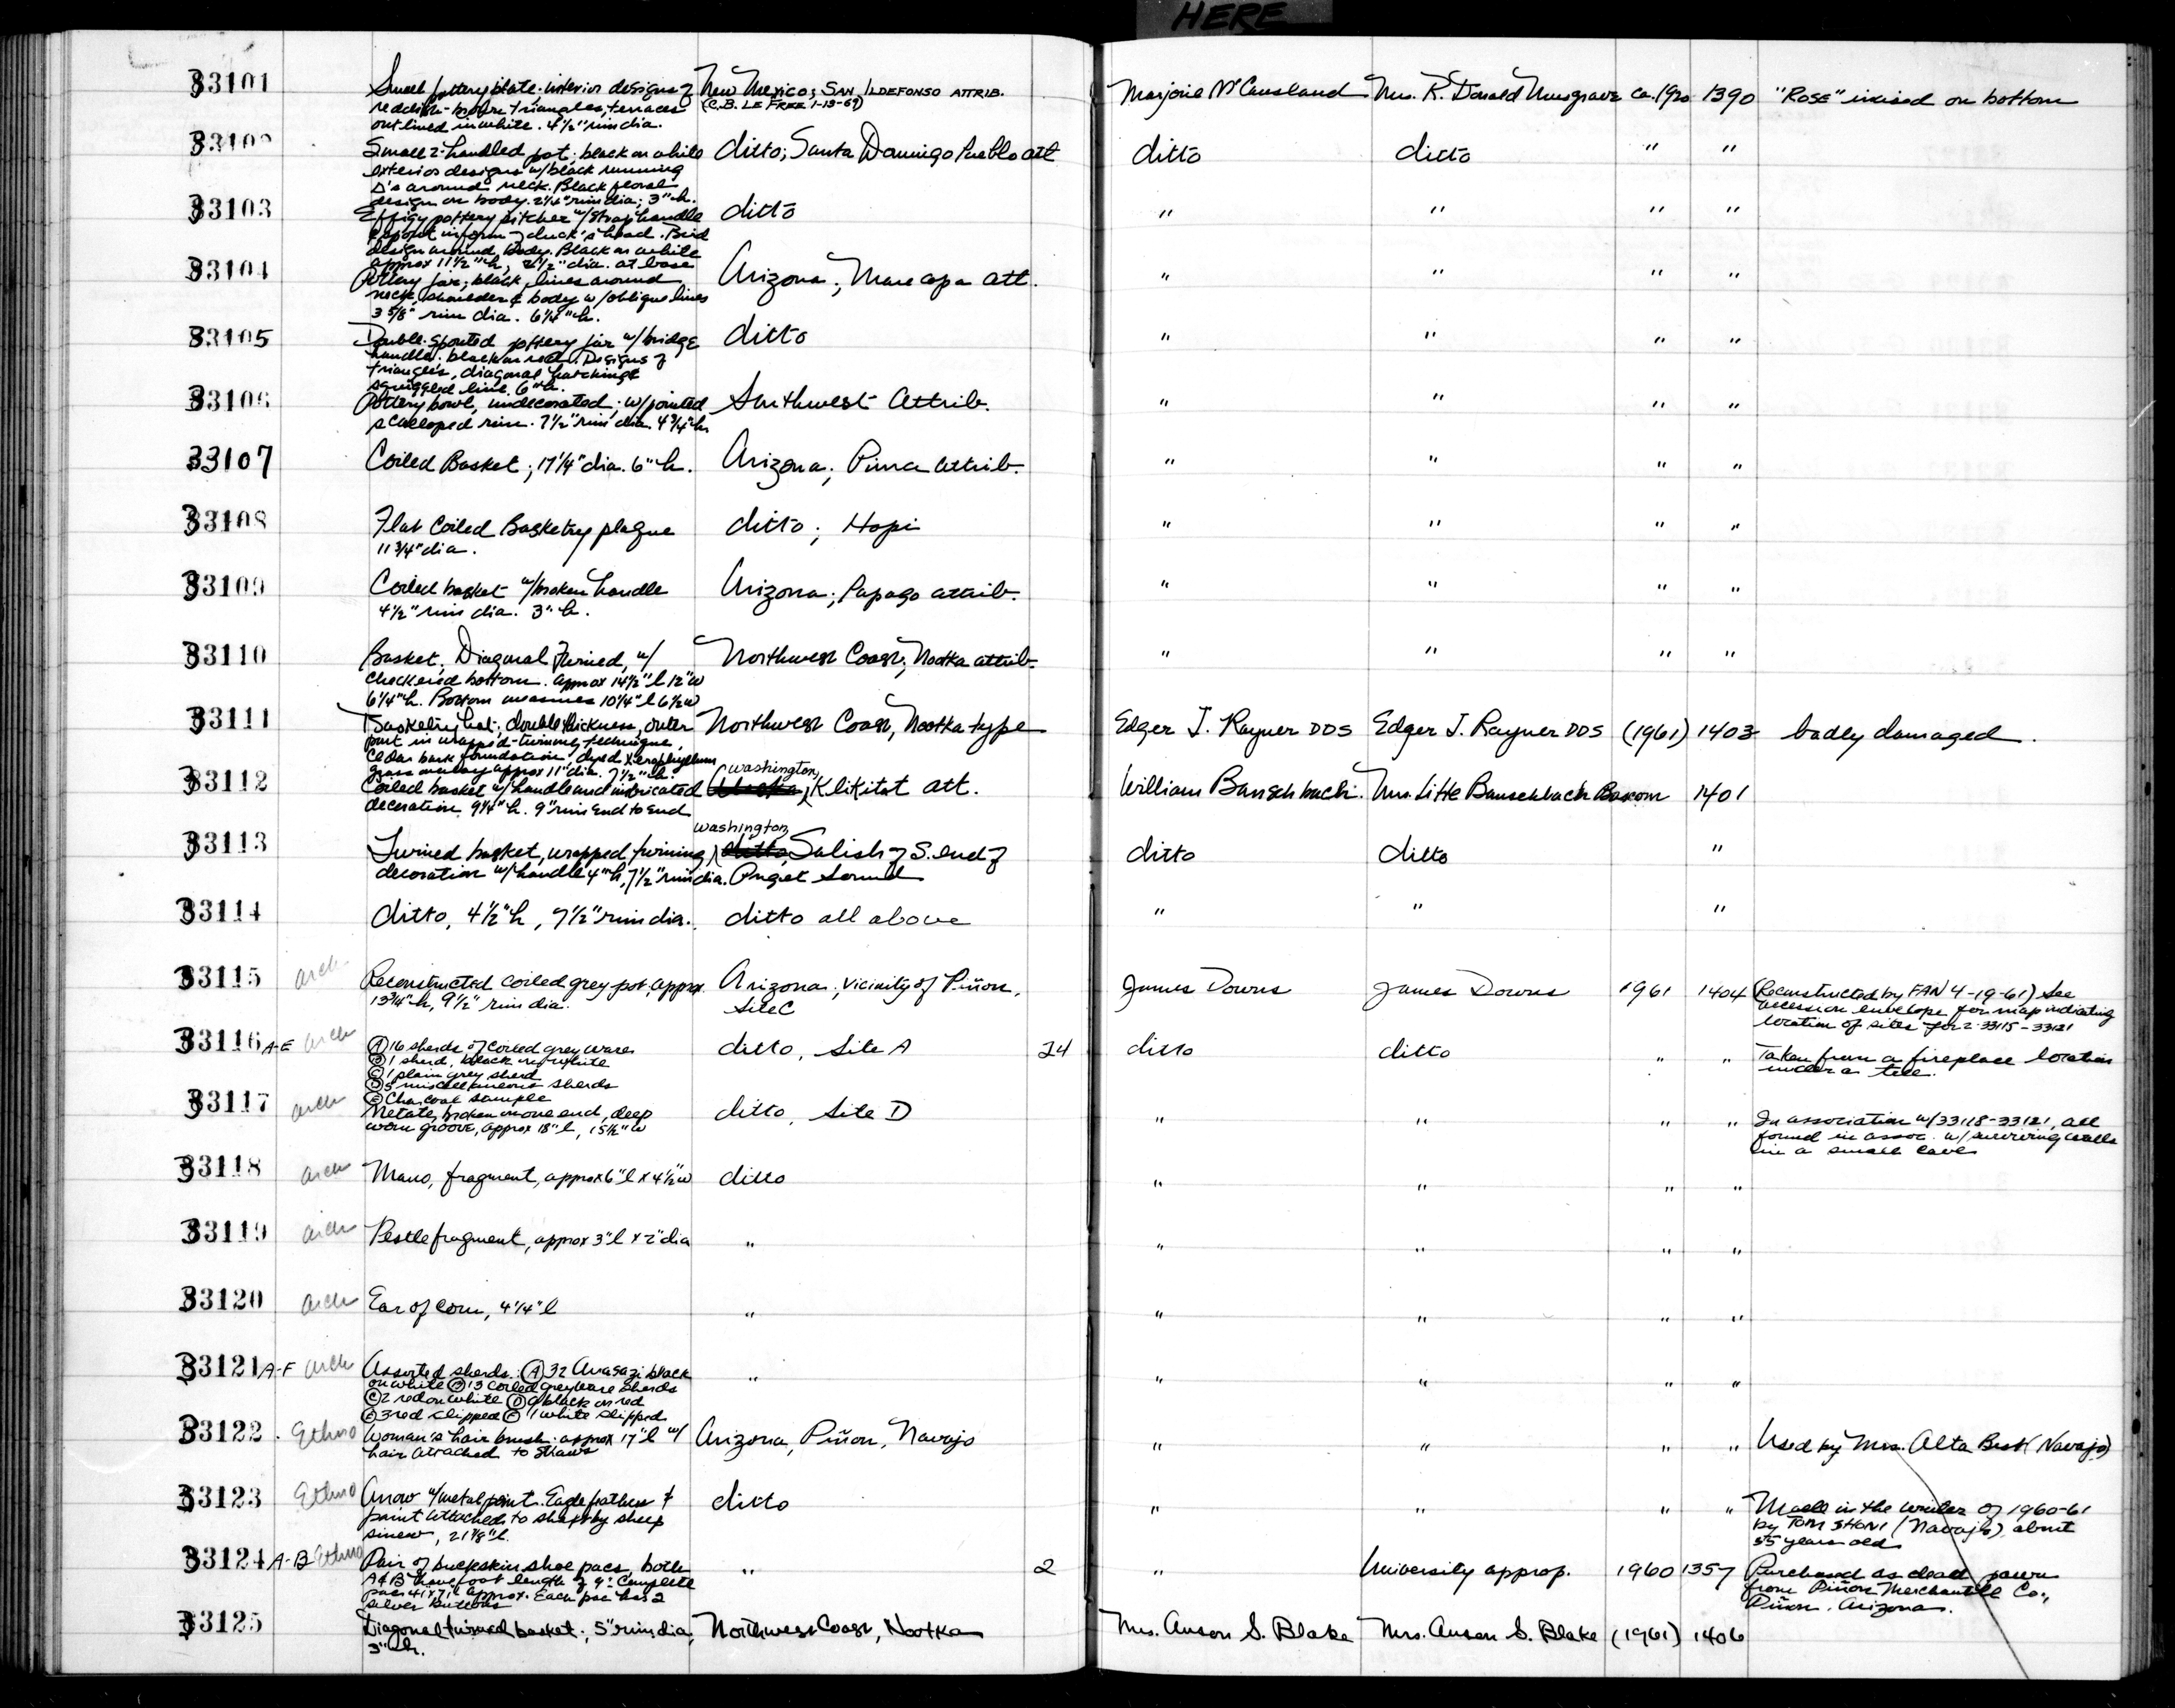 HERE
33101 Small pottery plate. interior designs of New Mexico; SAN ILDEFONSO ATTRIB. Marjorie McCausland Mrs. R. Donald Musgrave ca. 1920 1390 "ROSE" incised on bottom
reddish-brown triangles, terraces (C.B. LE FREE 1-13-67)
outlined in white. 4½" rim dia.
33102 Small 2-handled pot; black on white ditto; Santa Domingo Pueblo att ditto ditto " "
exterior designs w/black running
Δ's around neck. Black floral
design on body. 2¼" rim dia; 3" h.
33103 Effigy pottery pitcher w/strap handle ditto " " " "
& spout in form of duck's head. Bird
design around body. Black on white
approx 11½" h, ½" dia. at base
33104 Pottery jar; black lines around Arizona; Maricopa att. " " " "
neck, shoulder & body w/oblique lines
3 5/8" rim dia. 6¼" h.
33105 Double-spouted pottery jar w/bridge ditto " " " "
handle. black on red. Designs of
triangles, diagonal hatching &
squiggled line. 6" h.
33106 Pottery bowl, undecorated; w/pointed Southwest attrib. " " " "
scalloped rim. 7½" rim dia. 4¾" h
33107 Coiled Basket; 17¼" dia. 6" h. Arizona; Pima attrib. " " " "
33108 Flat Coiled Basketry plaque ditto; Hopi " " " "
11¾" dia.
33109 Coiled basket w/broken handle Arizona; Papago attrib. " " " "
4½" rim dia. 3" h.
33110 Basket, Diagonal Twined, w/ Northwest Coast; Nootka attrib. " " " "
checkered bottom. approx 14½" l 12" w
6¼" h. Bottom measures 10¼" l 6½ w
33111 Basketry hat; double thickness, outer Northwest Coast, Nootka type Edger J. Rayner DDS Edger J. Rayner DDS (1961) 1403 badly damaged.
part in wrapped-twining technique,
Cedar bark foundation, dyed Xerophyllum
grass overlay approx 11" dia. 7½" h.
33112 Coiled basket w/handle and imbricated Washington, Klikitat att. William Banschbach. Mrs. Litte Banschbach Bascom 1401
decoration. 9¼" h. 9" rim end to end
33113 Twined basket, wrapped twining, Washington, ditto, Salish of S. end of ditto ditto "
decoration w/handle 4" h, 7½" rim dia. Puget Sound
33114 ditto, 4½" h, 7½" rim dia. ditto all above " " "
33115 arch Reconstructed coiled grey pot, approx. Arizona; vicinity of Piñon, James Downs James Downs 1961 1404 (Reconstructed by FAN 4-19-61) See
13¾" h, 9½" rim dia. Site C accession envelope for map indicating
location of sites for 2-33115-33121
33116 A-E arch Ⓐ 16 sherds of coiled grey ware ditto, Site A 24 ditto ditto " " Taken from a fireplace location
Ⓑ 1 sherd, black on white under a tree.
Ⓒ 1 plain grey sherd
Ⓓ 5 miscellaneous sherds
Ⓔ Charcoal sample
33117 arch Metate, broken on one end, deep ditto, Site D " " " " In association w/33118-33121, all
worn groove, approx 18" l, 15½" w found in assoc. w/surviving walls
in a small cave
33118 arch Mano, fragment, approx 6" l x 4½" w ditto " " " "
33119 arch Pestle fragment, approx 3" l x 2" dia " " " " "
33120 arch Ear of Corn, 4¼" l " " " " "
33121 A-F arch Assorted sherds: Ⓐ 32 Anasazi black " " " " "
on white Ⓑ 13 coiled greyware sherds
Ⓒ 2 red on white Ⓓ 9 black on red
Ⓔ 3 red slipped Ⓕ 1 white slipped
33122 Ethno Woman's hair brush. approx 17" l w/ Arizona, Piñon, Navajo " " " " Used by Mrs. Alta Best (Navajo)
hair attached to straws
33123 Ethno Arrow w/metal point. Eagle feathers & ditto " " " " Made in the winter of 1960-61
point attached to shaft by sheep by TOM SHONI (Navajo) about
sinew, 21⅞" l. 55 years old
33124 A-B Ethno Pair of buckskin shoe pacs, both " 2 " University approp. 1960 1357 Purchased as dead pawn
A&B have foot length of 9". Complete from Piñon Mercantile Co.,
pacs 41x7½ approx. Each pac has 2 Piñon, Arizona.
silver buttons
33125 Diagonal twined basket; 5" rim dia, Northwest Coast, Nootka Mrs. Anson S. Blake Mrs. Anson S. Blake (1961) 1406
3" h.